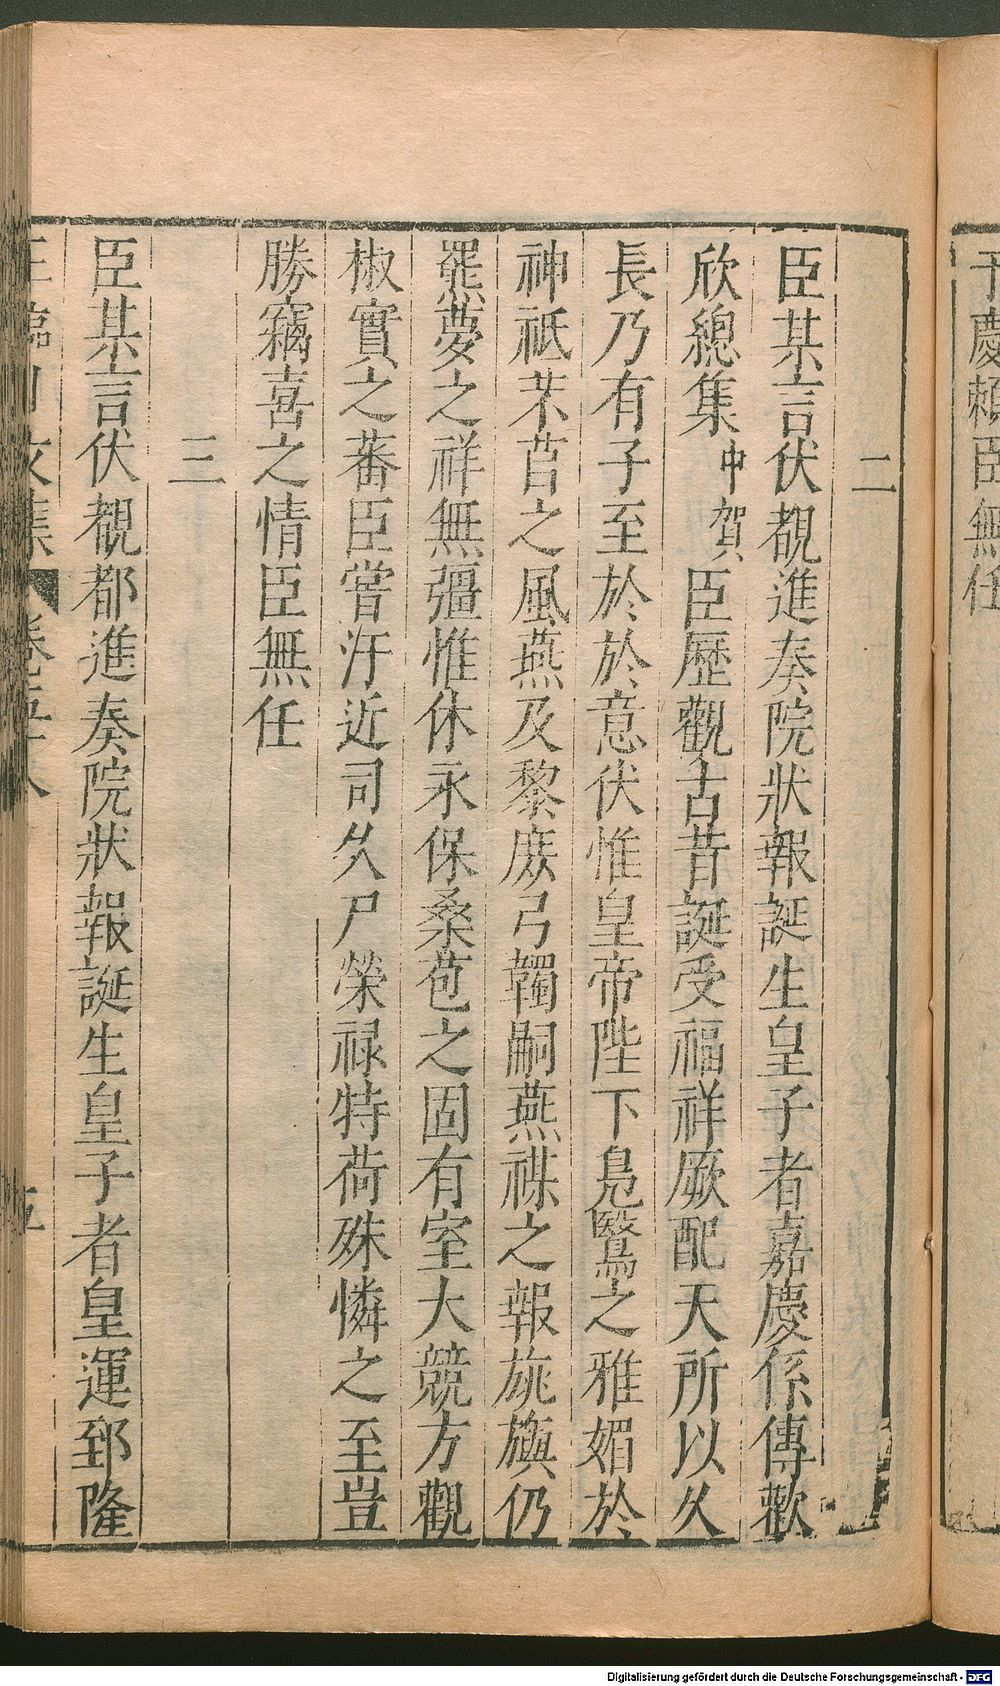 于慶賴臣無任
二
臣某言伏覩進奏院狀報誕生皇子者嘉慶係傳歡
欣總集中賀臣歷觀古昔誕受福祥厥配天所以久
長乃有子至於於意伏惟皇帝陛下鳧鷖之雅媚於
神祇芣苢之風燕及黎庶弓韣嗣燕禖之報旐旟仍
羆夢之祥無彊惟休永保桑苞之固有室大競方觀
椒實之蕃臣嘗汙近司久尸榮禄特荷殊憐之至豈
勝竊喜之情臣無任
三
臣某言伏覩都進奏院狀報誕生皇子者皇運郅隆
王臨川文集 卷五十八 五
Digitalisierung gefördert durch die Deutsche Forschungsgemeinschaft - DFG